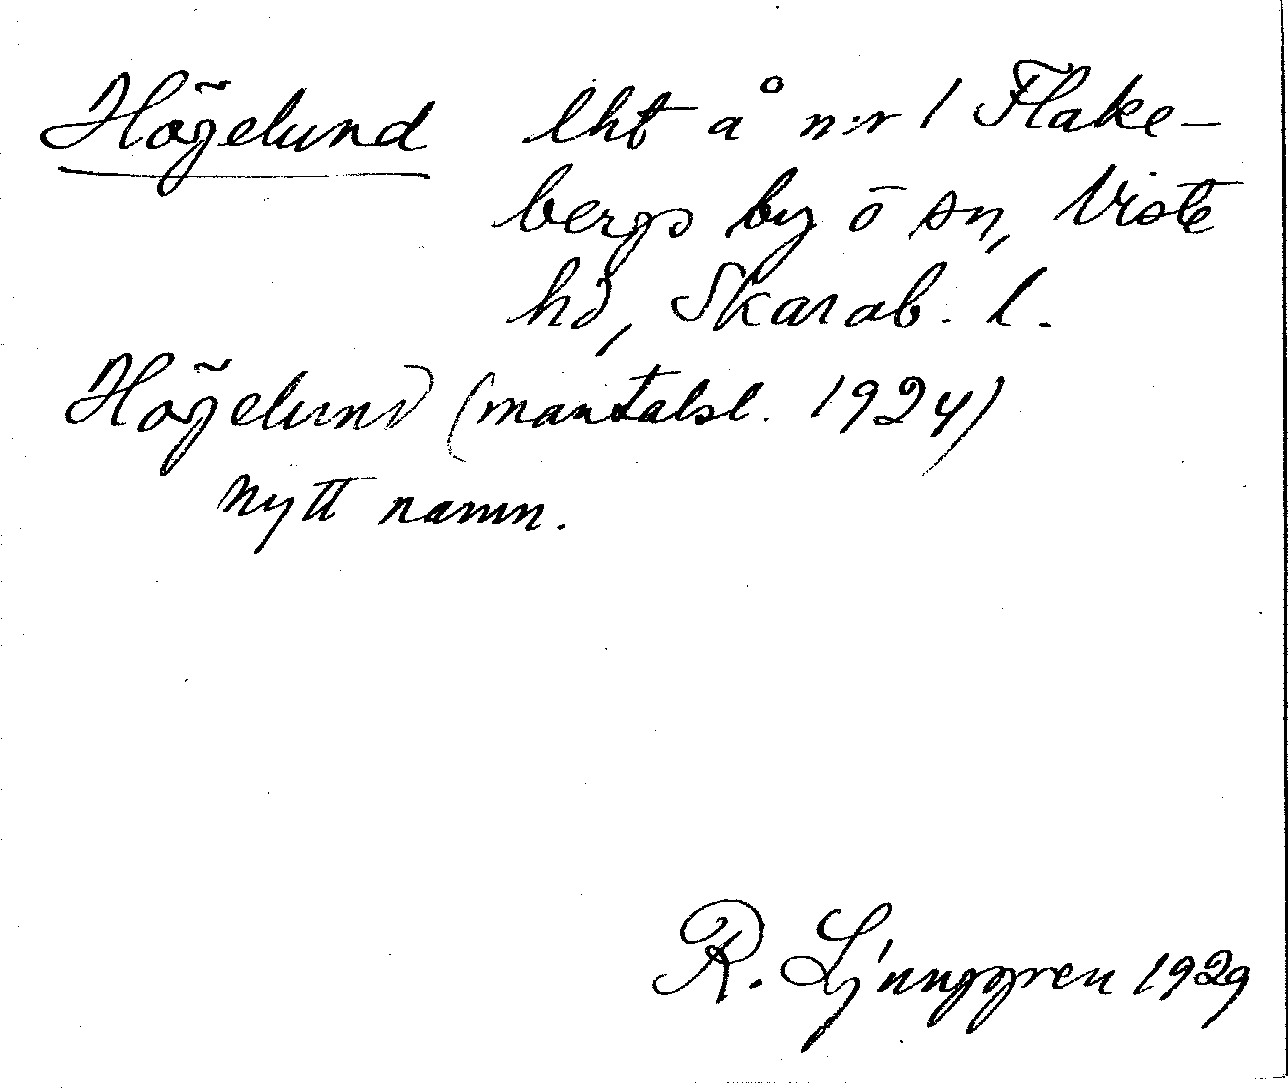 Högelund lht å n:r 1 Flake-
bergs by o sn, Viste
hd, Skarab. l.
Högelund (mantalsl. 1924)
nytt namn.
R. Ljunggren 1929